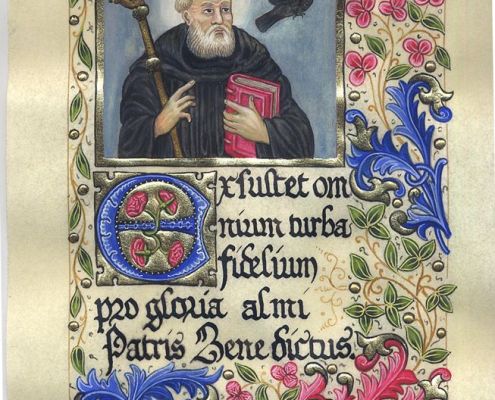 Exsultet om
nium turba
fidelium
pro gloria almi
Patris Benedictus.